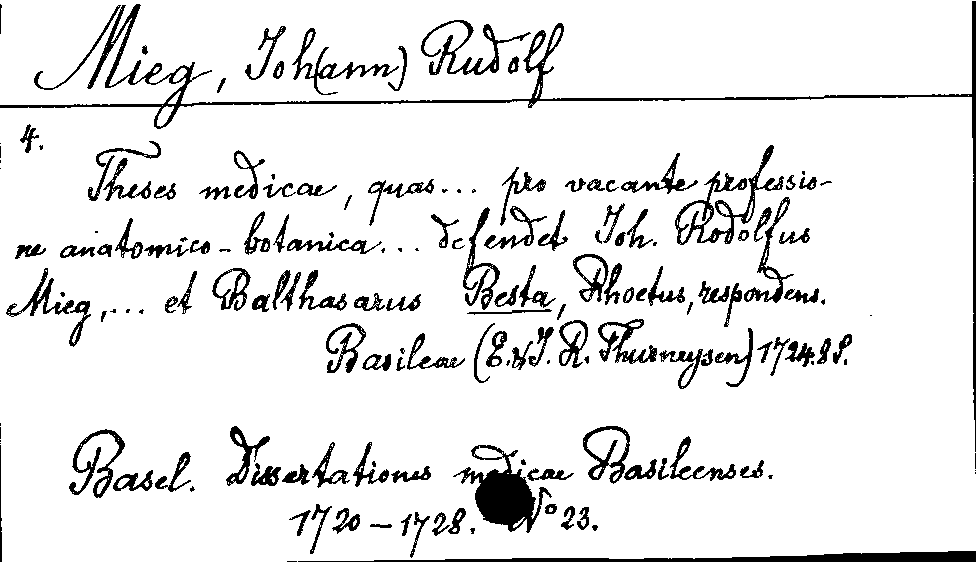 Mieg, Joh(ann) Rudolf
4.
Theses medicae, quas... pro vacante professio-
ne anatomico-botanica... defendet Joh. Rodolfus
Mieg,... et Balthasarus Besta, Rhoetus, respondens.
Basileae (E. & J. R. Thurneysen) 1724. 8 S.
Basel. Dissertationes medicae Basileenses.
1720-1728. No 23.